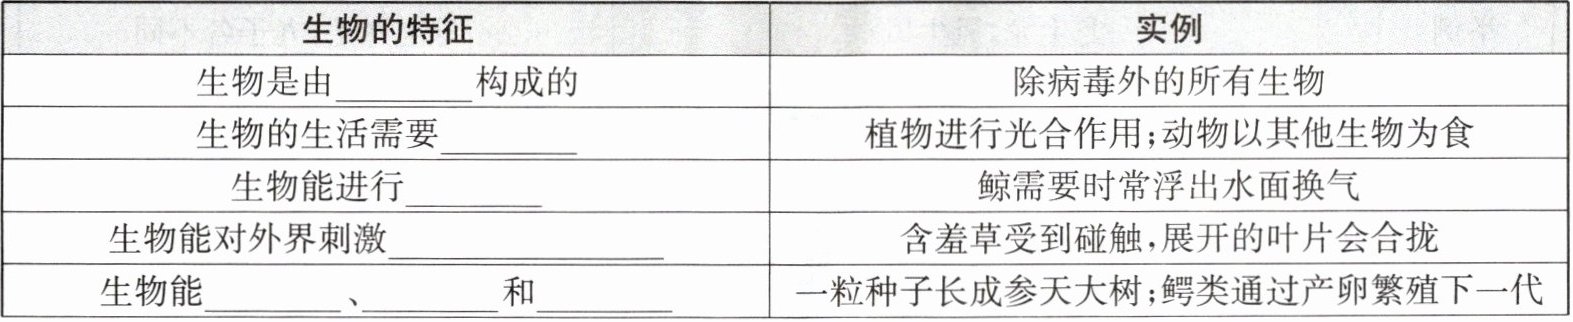 生物的特征 实例
生物是由________构成的 除病毒外的所有生物
生物的生活需要________ 植物进行光合作用;动物以其他生物为食
生物能进行________ 鲸需要时常浮出水面换气
生物能对外界刺激________________ 含羞草受到碰触,展开的叶片会合拢
生物能________、________和________ 一粒种子长成参天大树;鳄类通过产卵繁殖下一代